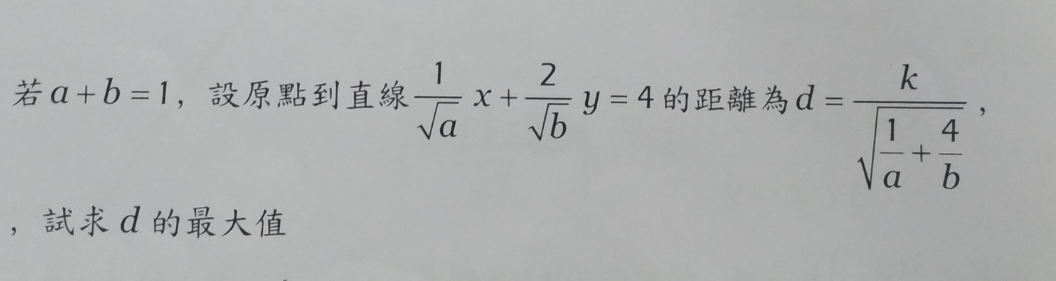 若 a + b = 1，設原點到直線 \frac{1}{\sqrt{a}} x + \frac{2}{\sqrt{b}} y = 4 的距離為 d = \frac{k}{\sqrt{\frac{1}{a} + \frac{4}{b}}}，
，試求 d 的最大值